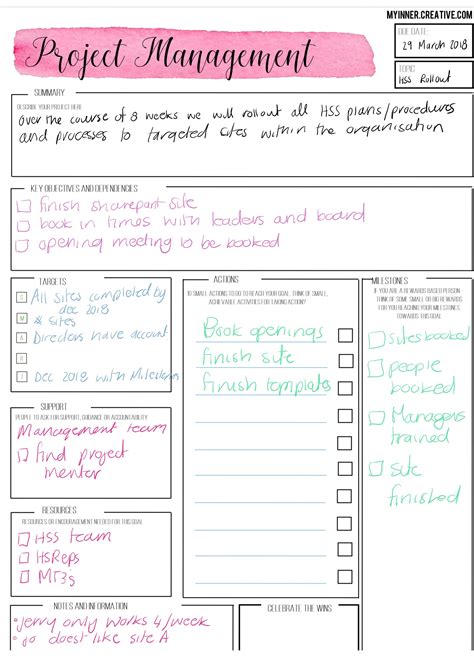 MYINNER.CREATIVE.COM
Project Management
DUE DATE:
29 March 2018
TOPIC
HSS Rollout
SUMMARY
DESCRIBE YOUR PROJECT HERE
Over the course of 8 weeks we will rollout all HSS plans/procedures
and processes to targeted sites within the organisation
KEY OBJECTIVES AND DEPENDENCIES
finish sharepart site
book in times with leaders and board
opening meeting to be booked
TARGETS
S All sites completed by
dec 2018
M 8 sites
A Directors have account
R
T Dec 2018 with Milestones
SUPPORT
PEOPLE TO ASK FOR SUPPORT, GUIDANCE OR ACCOUNTABILITY
Management team
find project
mentor
RESOURCES
RESOURCES OR ENCOURAGEMENT NEEDED FOR THIS GOAL
HSS team
HSReps
NOTES AND INFORMATION
Jerry only works 4/week
does't like site A
ACTIONS
10 SMALL ACTIONS TO DO TO REACH YOUR GOAL. THINK OF SMALL,
ACHIEVABLE ACTIVITIES FOR TAKING ACTION?
Book openings
finish site
finish templates
MILESTONES
IF YOU ARE A REWARDS BASED PERSON
THINK OF SOME SMALL OR BIG REWARDS
FOR YOU REACHING YOUR MILESTONES
TOWARDS THIS GOAL
sites booked
people
booked
Managers
trained
site
finished
CELEBRATE THE WINS